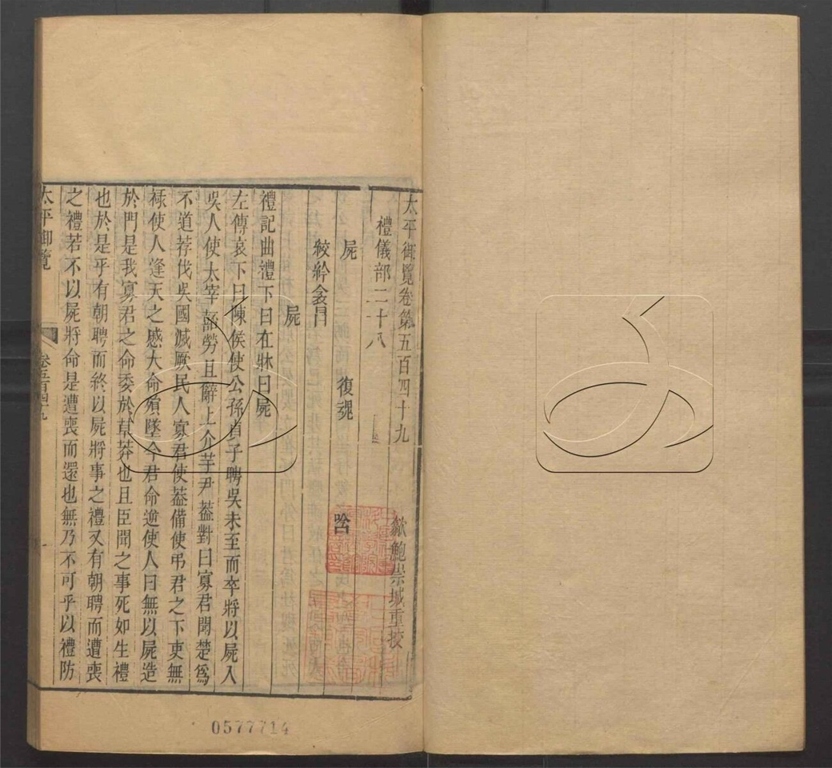 太平御覽卷第五百四十九
歙鮑崇城重挍
禮儀部二十八
屍　復魂　唅
絞紟衾冒
屍
禮記曲禮下曰在牀曰屍
左傳哀下曰陳侯使公孫貞子聘吳未至而卒將以屍入
吳人使太宰嚭勞且辭上介芋尹葢對曰寡君聞楚爲
不道荐伐吳國滅厥民人寡君使葢備使弔君之下吏無
祿使人逢天之慼大命殞墜今君命逆使人曰無以屍造
於門是我寡君之命委於草莽也且臣聞之事死如生禮
也於是乎有朝聘而終以屍將事之禮又有朝聘而遭喪
之禮若不以屍將命是遭喪而還也無乃不可乎以禮防
太平御覽　卷五百四十九　一
0577714